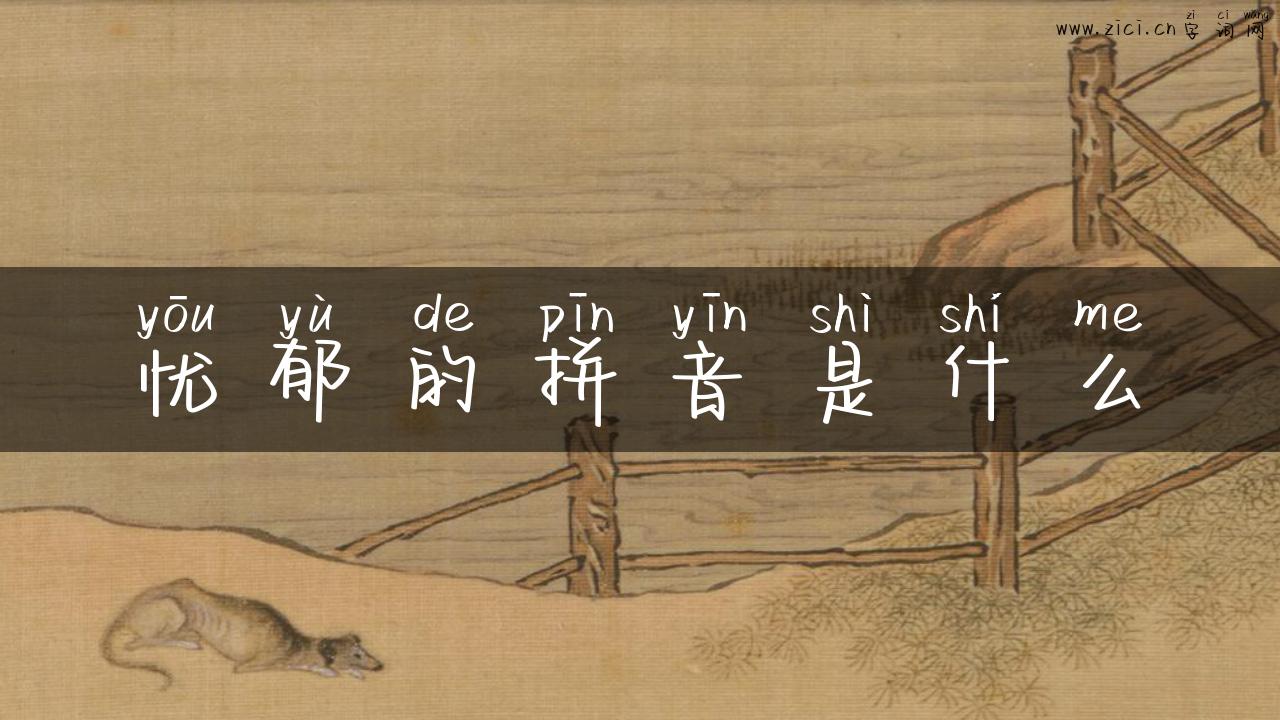 zì cí wǎng
www.zici.cn 字词网
yōu yù de pīn yīn shì shí me
忧郁的拼音是什么